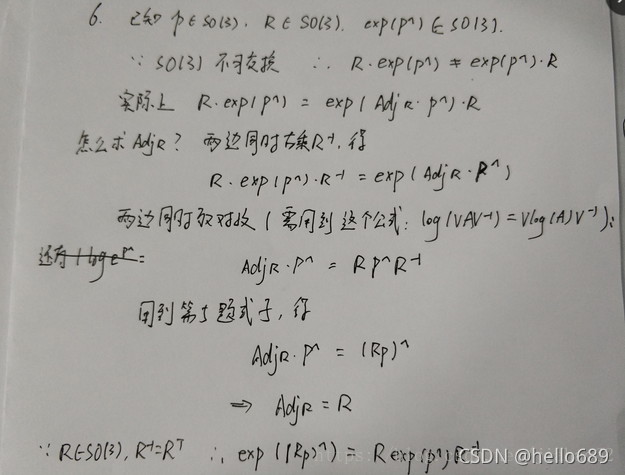 6. 已知 p∈so(3), R∈SO(3). exp(p^)∈SO(3).
∵ SO(3) 不可交换 ∴ R·exp(p^) ≠ exp(p^)·R
实际上 R·exp(p^) = exp(AdjR·p^)·R
怎么求AdjR? 两边同时右乘R⁻¹,得
R·exp(p^)·R⁻¹ = exp(AdjR·R^)
两边同时取对数(需用到这个公式: log(VAV⁻¹) = Vlog(A)V⁻¹):
还有 log e^p^ =
AdjR·p^ = Rp^R⁻¹
用到第5题式子,得
AdjR·p^ = (Rp)^
⇒ AdjR = R
∵ R∈SO(3), R⁻¹=Rᵀ ∴ exp((Rp)^) = R exp(p^)R⁻¹
CSDN @hello689